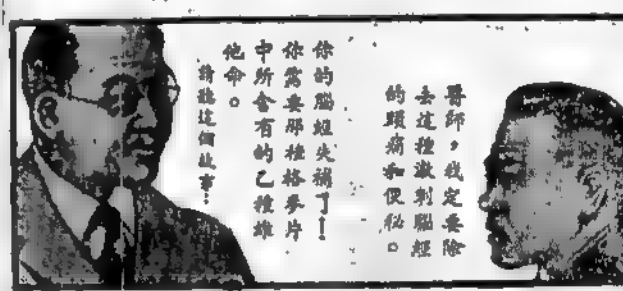 醫師，我定要除
去這種激刺腦經
的頭痛和便秘。
你的腦經失補了！
你需要那桂格麥片
中所含有的乙種維
他命。
請聽這個故事：